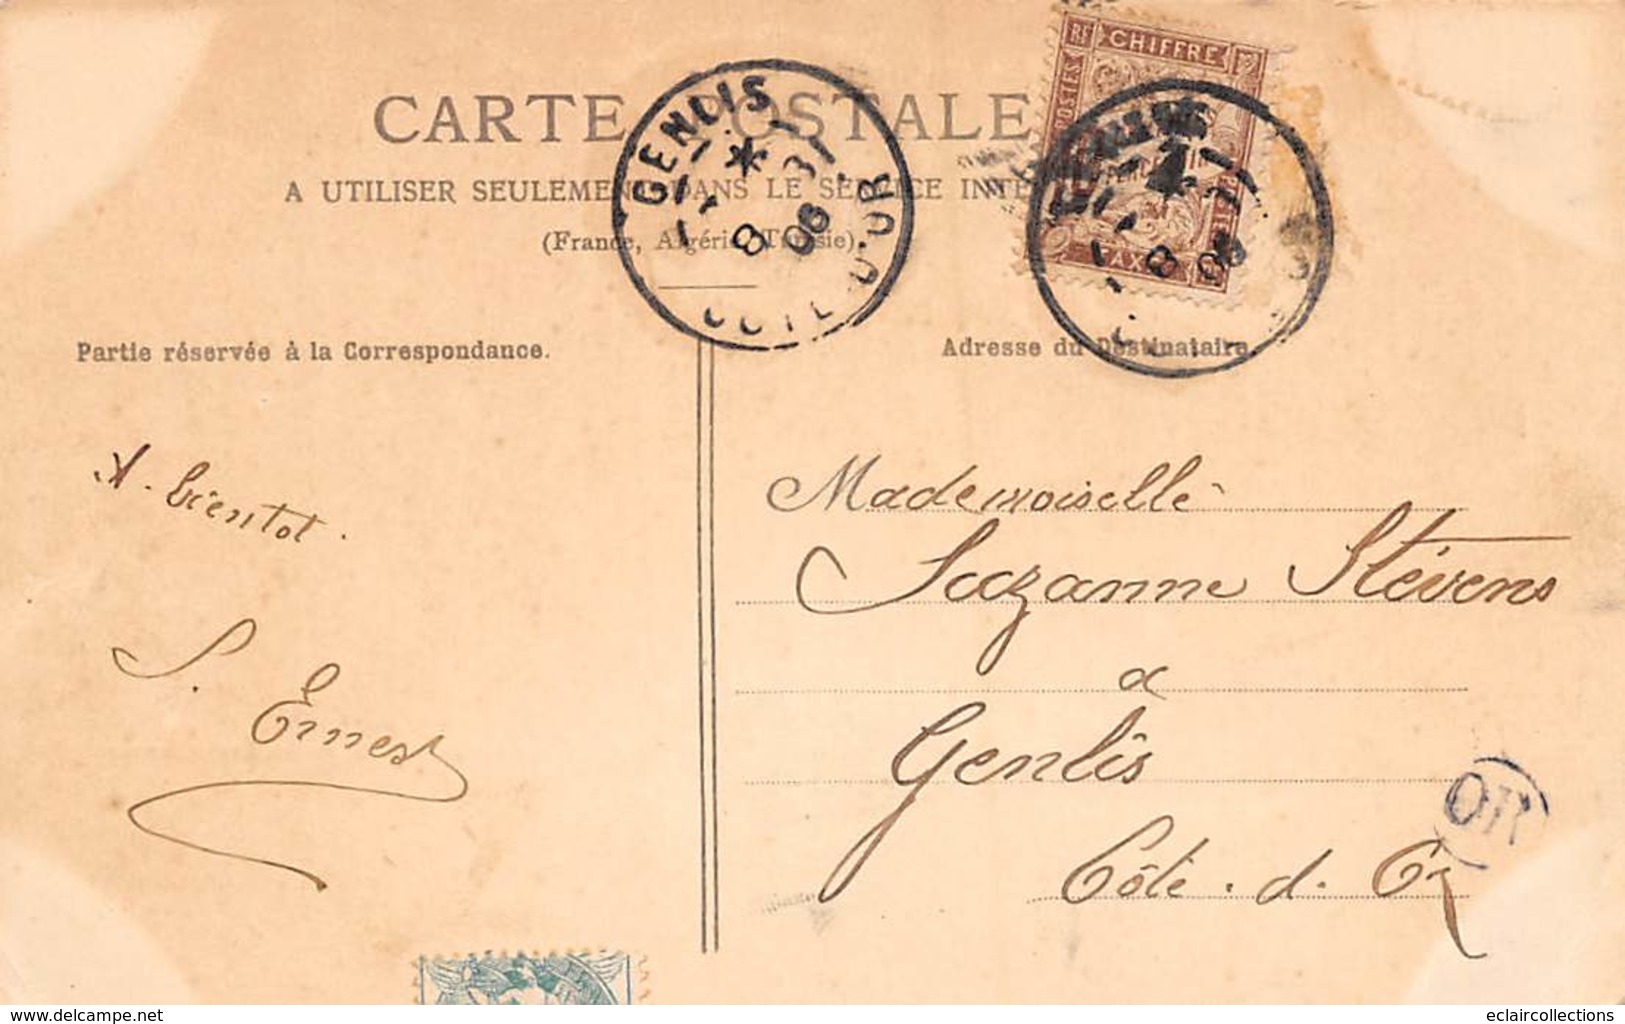 CARTE POSTALE
A UTILISER SEULEMENT DANS LE SERVICE
(France, Algérie, Tunisie)
GENLIS
31
8
06
COTE D'OR
RF CHIFFRE
POSTES
TAXE
8
06
Partie réservée à la Correspondance.
Adresse du Destinataire
A. bientot.
S. Ernest
Mademoiselle
Suzanne Stévens
à
Genlis
Côte. d. Or
OR
delcampe.net
eclaircollections